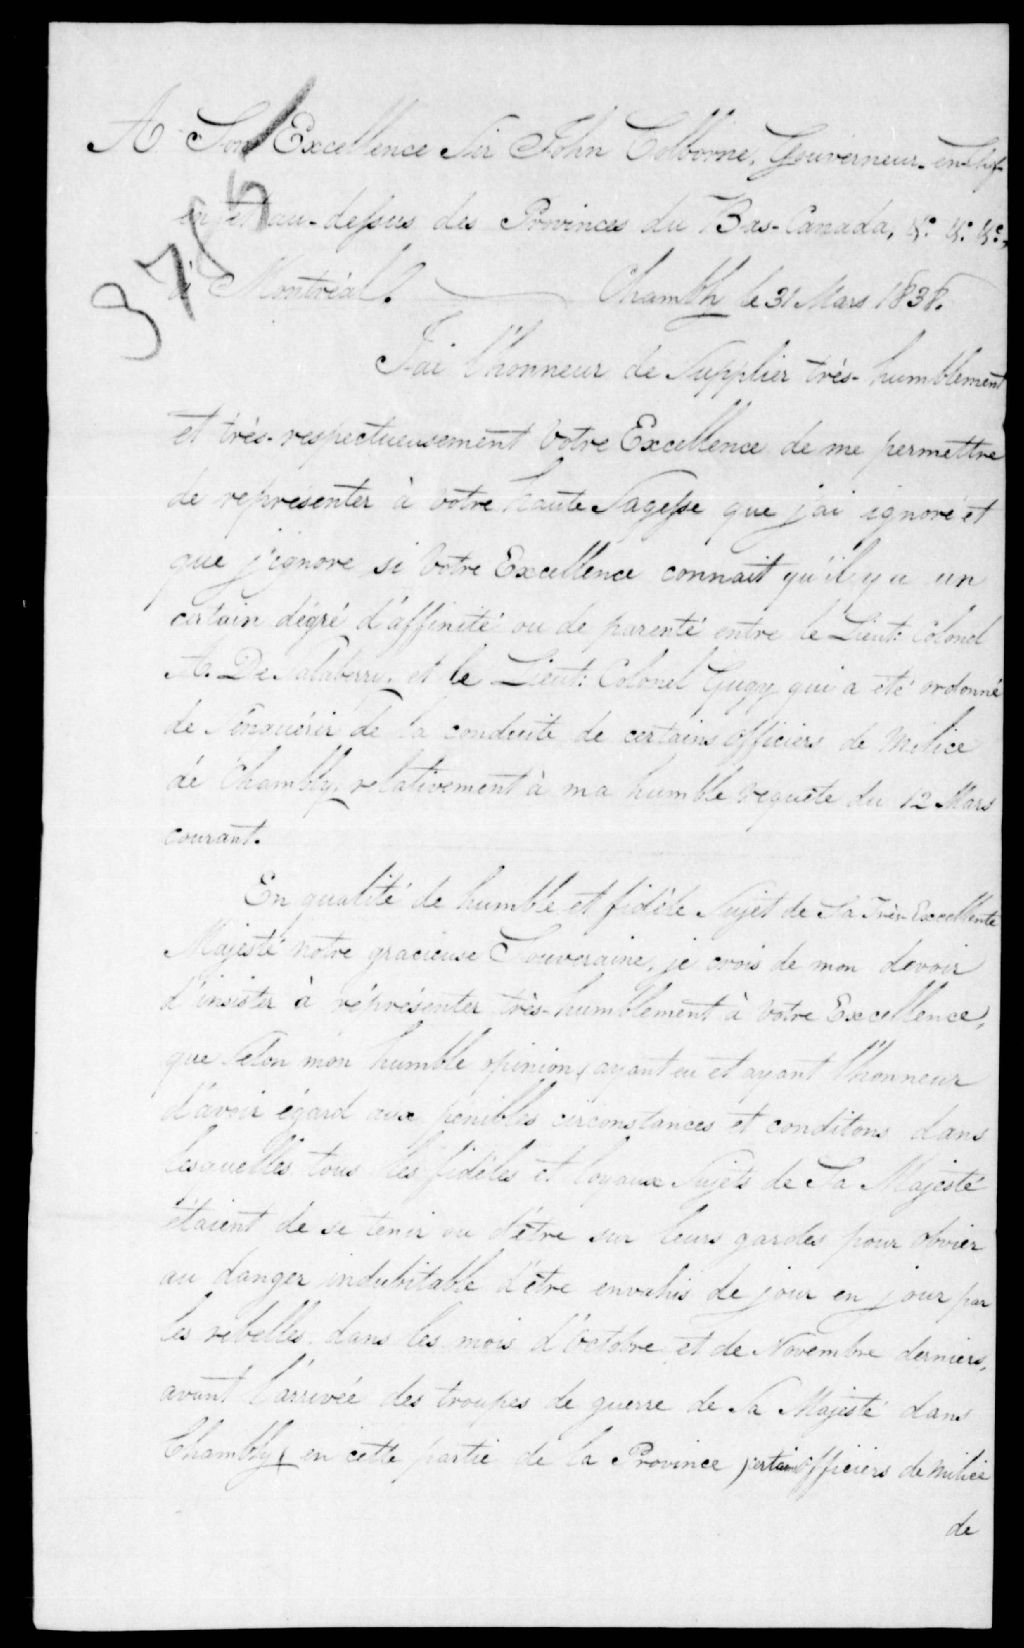 A Son Excellence Sir John Colborne, Gouverneur-en Chef
en, et au-dessus des Provinces du Bas-Canada, &c. &c. &c.,
à Montréal. Chambly le 31 Mars 1838.
3715
J'ai l'honneur de Supplier très-humblement
et très-respectueusement Votre Excellence de me permettre
de représenter à votre haute Sagesse que j'ai ignoré et
que j'ignore si Votre Excellence connait qu'il y a un
certain dégré d'affinité ou de parenté entre le Lieut: Colonel
A. De Salaberry, et le Lieut: Colonel Gugy qui a été ordonné
de s'enquérir de la conduite de certains officiers de Milice
de Chambly, relativement à ma humble requête du 12 Mars
courant.
En qualité de humble et fidèle Sujet de Sa Très-Excellente
Majesté notre gracieuse Souveraine, je crois de mon devoir
d'insister à réprésenter très-humblement à Votre Excellence,
que Selon mon humble opinion, ayant eu et ayant l'honneur
d'avoir égard aux pénibles circonstances et conditons dans
lesquelles tous les fidèles et loyaux Sujets de Sa Majesté
étaient de se tenir ou d'être sur leurs gardes pour obvier
au danger indubitable d'être envahis de jour en jour par
les rebelles dans les mois d'Octobre et de Novembre derniers,
avant l'arrivée des troupes de guerre de Sa Majesté dans
Chambly en cette partie de la Province certains officiers de Milice
de